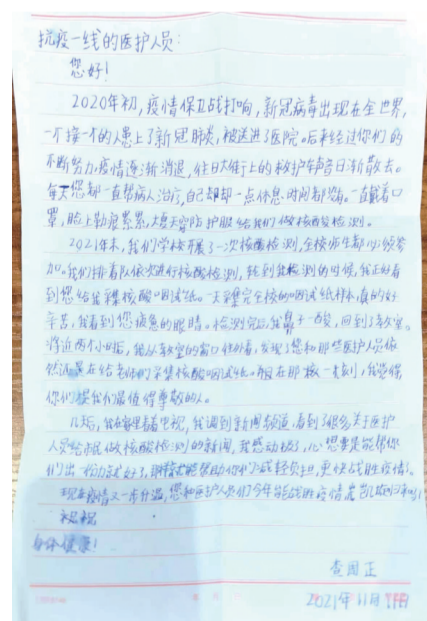 抗疫一线的医护人员：
您好！
2020年初，疫情保卫战打响，新冠病毒出现在全世界，
一个接一个的人患上了新冠肺炎，被送进了医院。后来经过你们的
不断努力疫情逐渐消退，往日大街上的救护车声音日渐散去。
每天您都一直帮病人治疗，自己却却一点休息时间都没有。一直戴着口
罩，脸上勒痕累累，大夏天穿防护服给我们做核酸检测。
2021年末，我们学校开展了一次核酸检测，全校师生都必须参
加。我们排着队依次进行核酸检测，轮到我检测的时候，我正好看
到您给我采集核酸咽试纸。一天采完全校的咽试纸样本，真的好
辛苦，我看到您疲惫的眼睛。检测完后，我鼻子一酸，回到了教室。
将近两个小时后，我从教室的窗口往外看，发现了您和那些医护人员依
然还在给老师们采集核酸咽试纸。在那一刻，我觉得，
你们是我们最值得尊敬的人。
几天后，我在家里看电视，我调到新闻频道，看到了很多关于医护
人员给市民做核酸检测的新闻，我感动极了，心想要是能帮你
们出一份力就好了，那样就能帮助你们减轻负担，更快战胜疫情！
现在疫情又一步升温，您和医护人员们今年能战胜疫情
祝祝
身体健康！
查因正
2021年11月11日